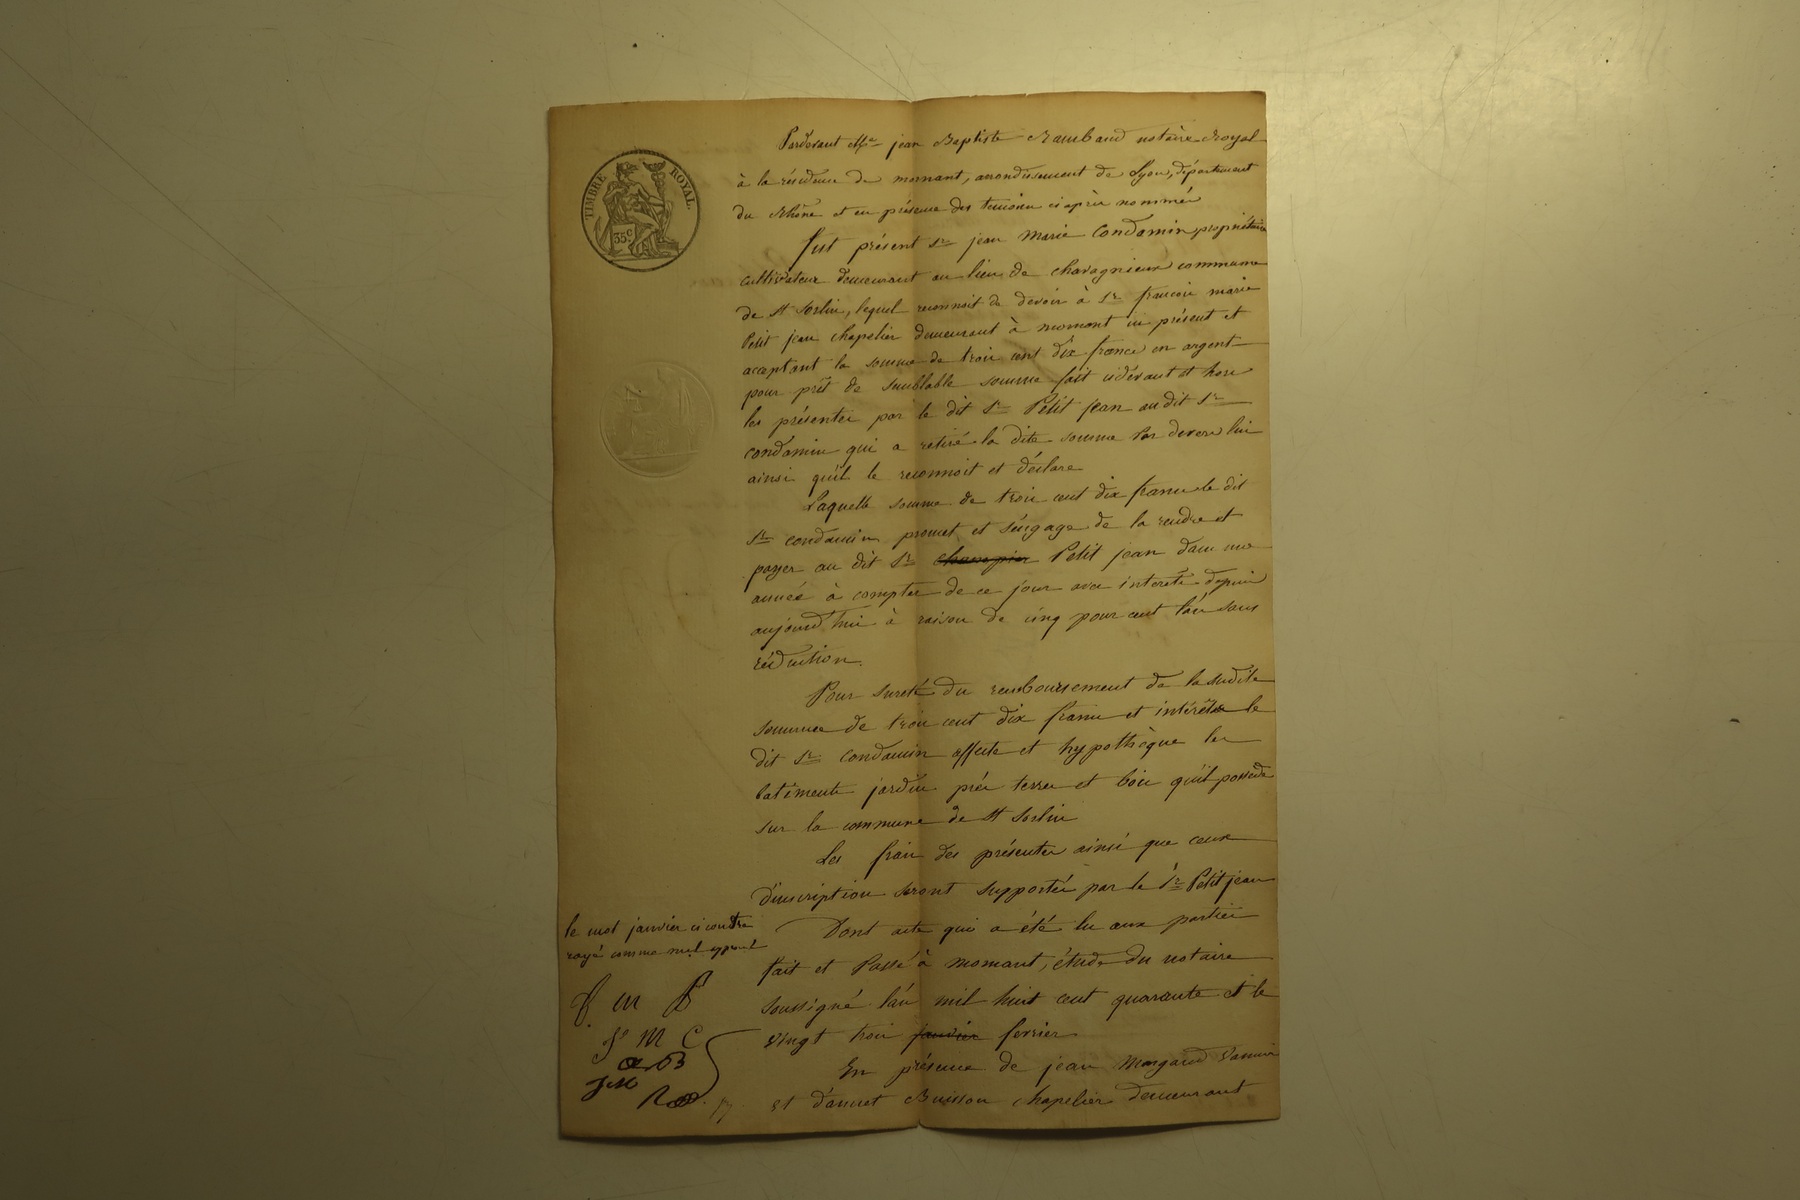 TIMBRE ROYAL.
35c
Pardevant Me jean Baptiste Rambaud notaire Royal
à la résidence de mornant, arrondissement de Lyon, département
du Rhône et en présence des temoins ci après nommés
fut présent Sr jean Marie Condamin propriétaire
cultivateur demeurant au lieu de chavagnieux commune
de St Sorlin, lequel reconnoit de devoir à Sr francois marie
Petit jean chapelier demeurant à mornant ici présent et
acceptant la somme de trois cent dix francs en argent
pour prêt de semblable somme fait cidevant et hors
les présentes par le dit Sr Petit jean au dit Sr
condamin qui a retiré la dite somme Par devers lui
ainsi qu'il le reconnoit et déclare
Laquelle somme de trois cent dix francs le dit
Sr condamin promet et s'engage de la rendre et
payer au dit Sr Petit jean dans une
année à compter de ce jour avec interets depuis
aujourd'hui à raison de cinq pour cent l'an sans
réduction.
Pour sureté du remboursement de la sudite
somme de trois cent dix francs et intérêts le
dit Sr Condamin affecte et hypothèque les
batiments jardin prés terres et bois qu'il possede
sur la commune de St Sorlin
Les frais des présentes ainsi que ceux
d'inscription seront supportés par le Sr Petit jean
Dont acte qui a été lu aux parties
fait et Passé à mornant, étude du notaire
soussigné l'an mil huit cent quarante et le
vingt trois janvier fevrier
En présence de jean Margand
et d'annet Buisson chapelier demeurant
le mot janvier ci contre
rayé comme mal
f m P
J M C
a B
JM
R